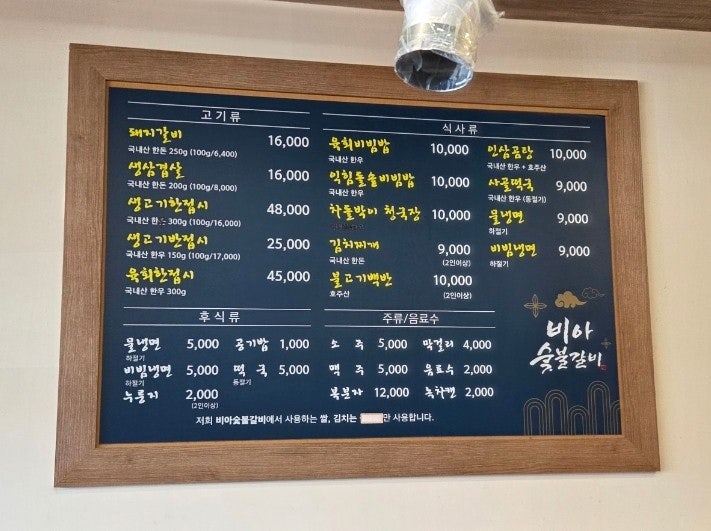 고기류
돼지갈비 16,000
국내산 한돈 250g (100g/6,400)
생삼겹살 16,000
국내산 한돈 200g (100g/8,000)
생고기한접시 48,000
국내산 한돈 300g (100g/16,000)
생고기반접시 25,000
국내산 한우 150g (100g/17,000)
육회한접시 45,000
국내산 한우 300g
식사류
육회비빔밥 10,000
국내산 한우
익힘돌솥비빔밥 10,000
국내산 한우
차돌박이 청국장 10,000
김치찌개 9,000
국내산 한돈 (2인이상)
불고기백반 10,000
호주산 (2인이상)
인삼곰탕 10,000
국내산 한우 + 호주산
사골떡국 9,000
국내산 한우 (동절기)
물냉면 9,000
하절기
비빔냉면 9,000
하절기
후식류
물냉면 5,000
하절기
비빔냉면 5,000
하절기
누룽지 2,000
(2인이상)
공기밥 1,000
떡 국 5,000
동절기
주류/음료수
소 주 5,000
맥 주 5,000
복분자 12,000
막걸리 4,000
음료수 2,000
녹차캔 2,000
비아
숯불갈비
저희 비아숯불갈비에서 사용하는 쌀, 김치는 만 사용합니다.